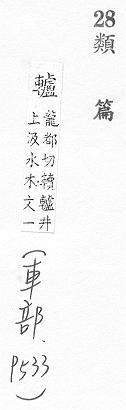 28類篇
轤
龍都切轒轤井
上汲水木文一
(車部. P533)